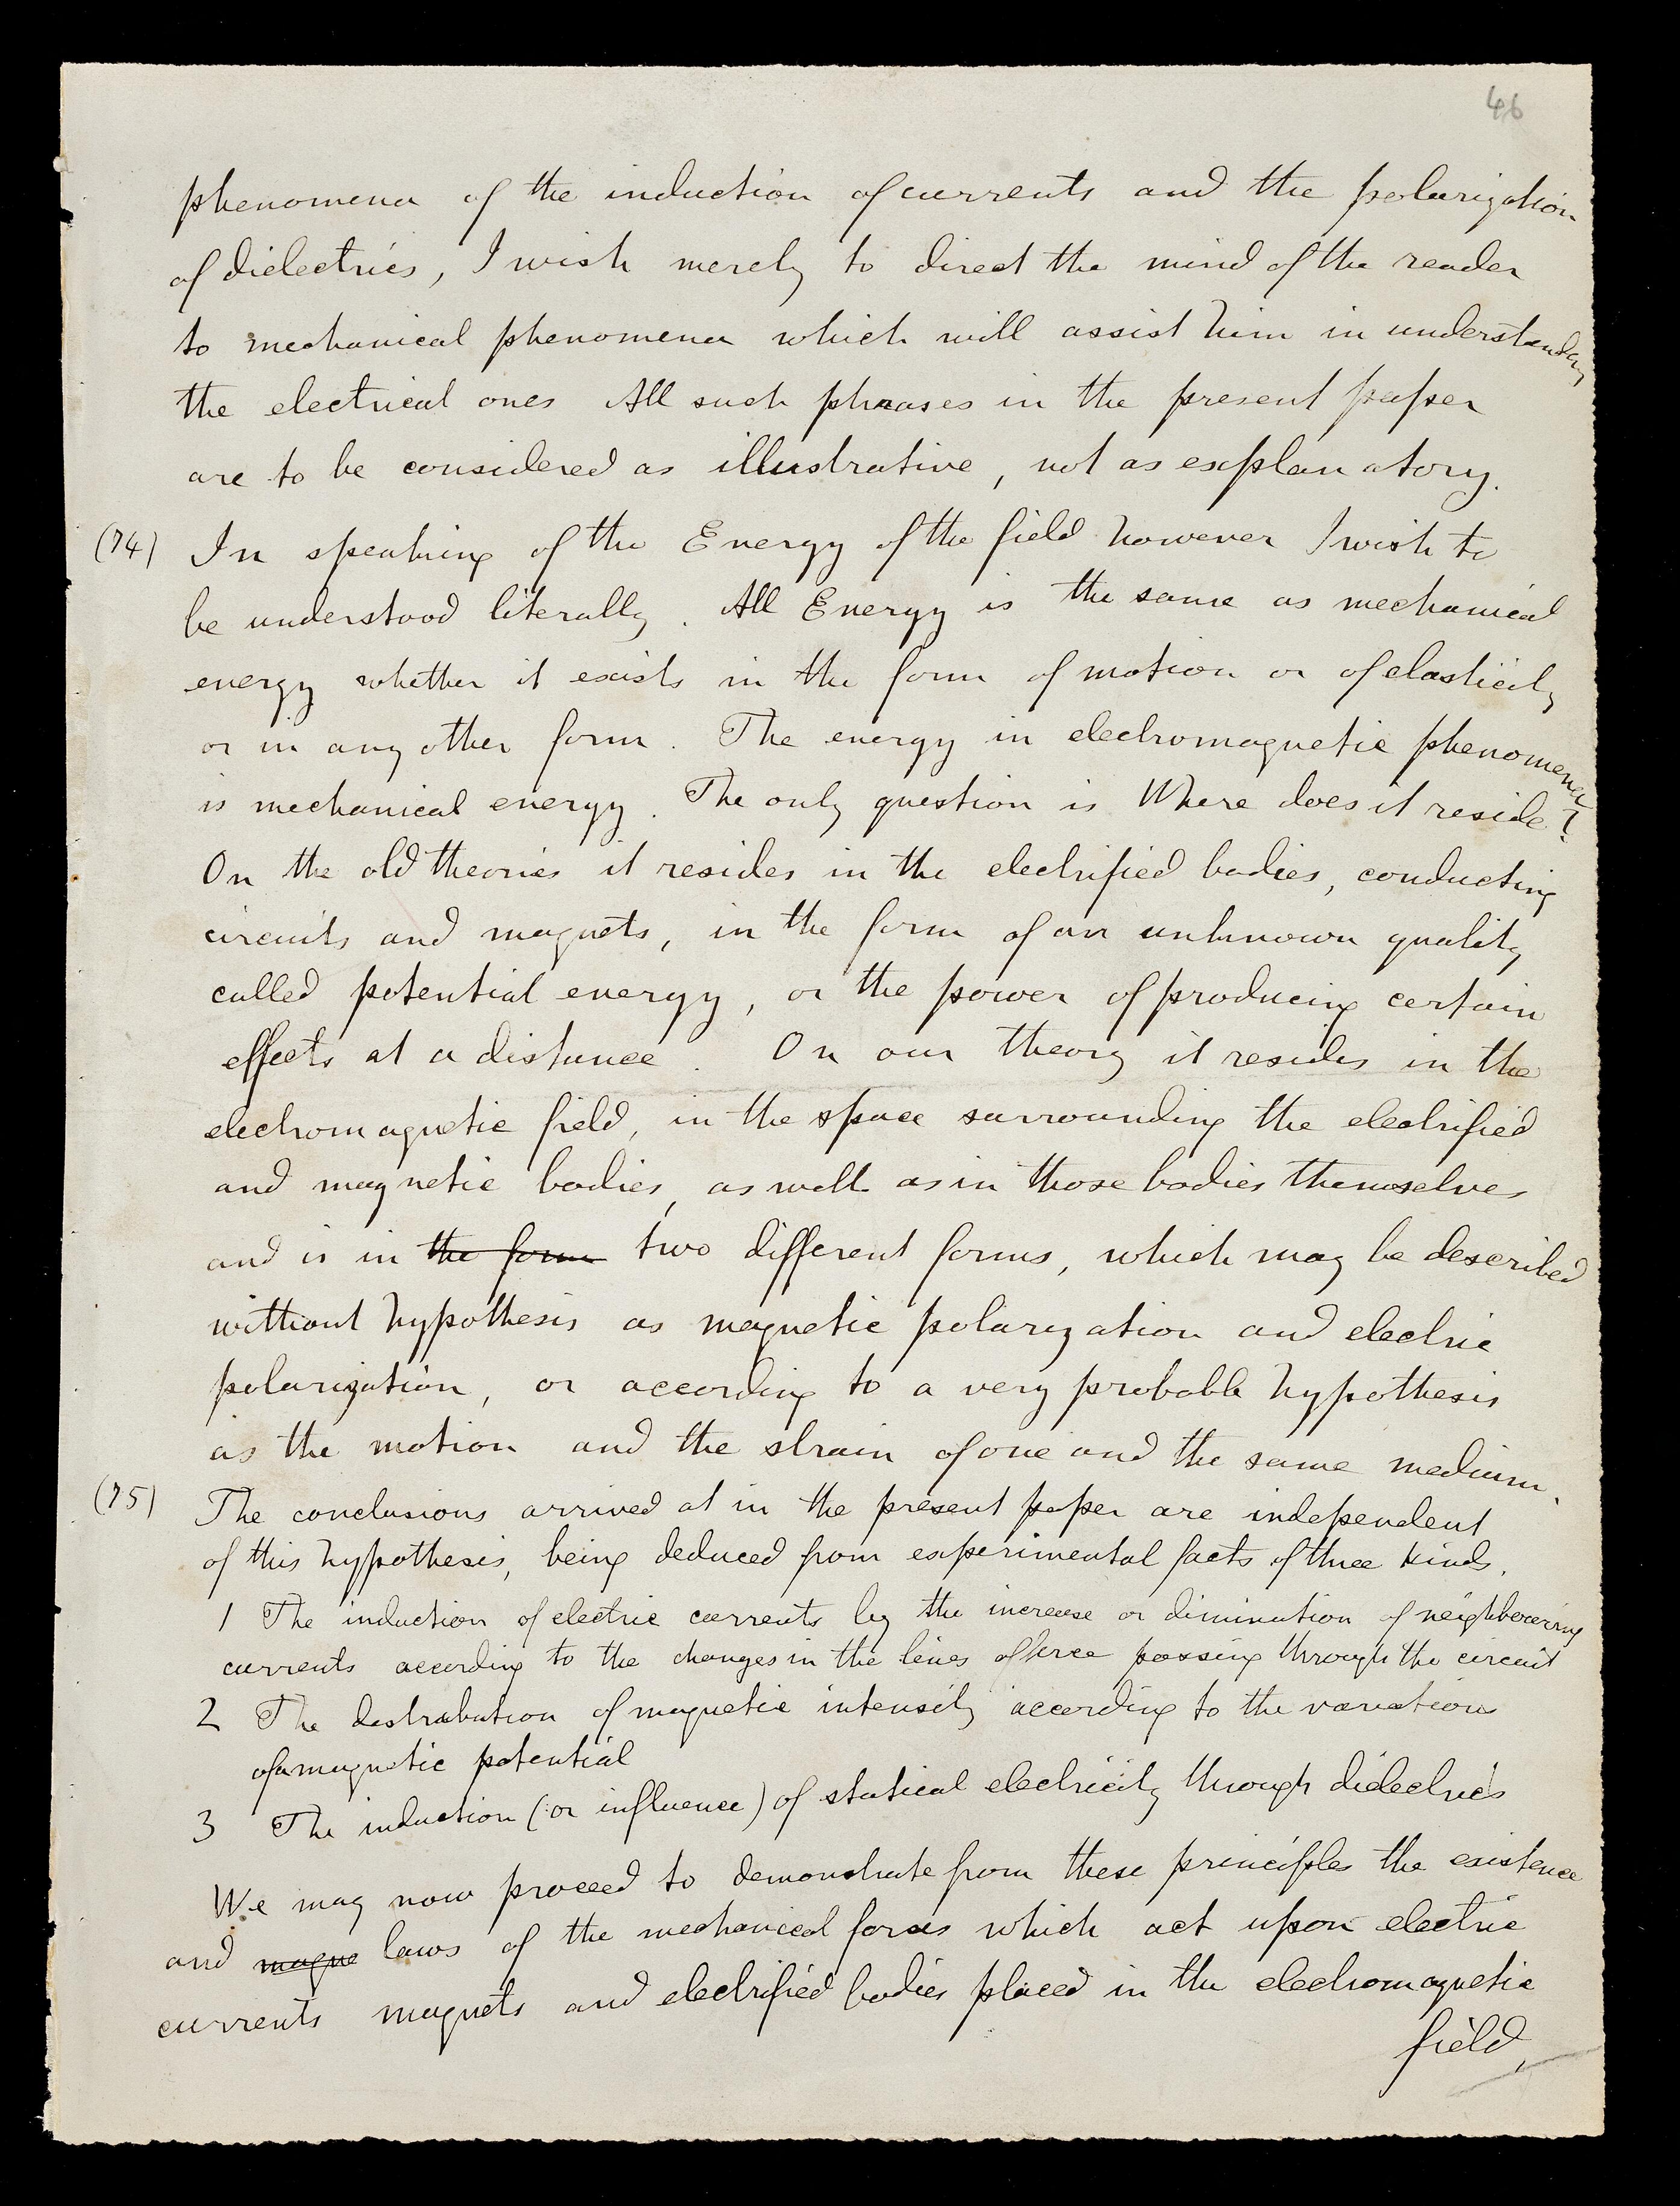 46
phenomena of the induction of currents and the polarization
of dielectrics, I wish merely to direct the mind of the reader
to mechanical phenomena which will assist him in understanding
the electrical ones All such phrases in the present paper
are to be considered as illustrative, not as explanatory.
(74) In speaking of the Energy of the field however I wish to
be understood literally. All Energy is the same as mechanical
energy whether it exists in the form of motion or of elasticity
or in any other form. The energy in electromagnetic phenomena
is mechanical energy. The only question is Where does it reside?
On the old theories it resides in the electrified bodies, conducting
circuits and magnets, in the form of an unknown quality
called potential energy, or the power of producing certain
effects at a distance. On our theory it resides in the
electromagnetic field, in the space surrounding the electrified
and magnetic bodies, as well as in those bodies themselves
and is in the form two different forms, which may be described
without hypothesis as magnetic polarization and electric
polarization, or according to a very probable hypothesis
as the motion and the strain of one and the same medium.
(75) The conclusions arrived at in the present paper are independent
of this hypothesis, being deduced from experimental facts of three kinds.
1 The induction of electric currents by the increase or diminution of neighbouring
currents according to the changes in the lines of force passing through the circuit
2 The distribution of magnetic intensity according to the variations
of a magnetic potential
3 The induction (or influence) of statical electricity through dielectrics
We may now proceed to demonstrate from these principles the existence
and magne laws of the mechanical forces which act upon electric
currents magnets and electrified bodies placed in the electromagnetic
field,